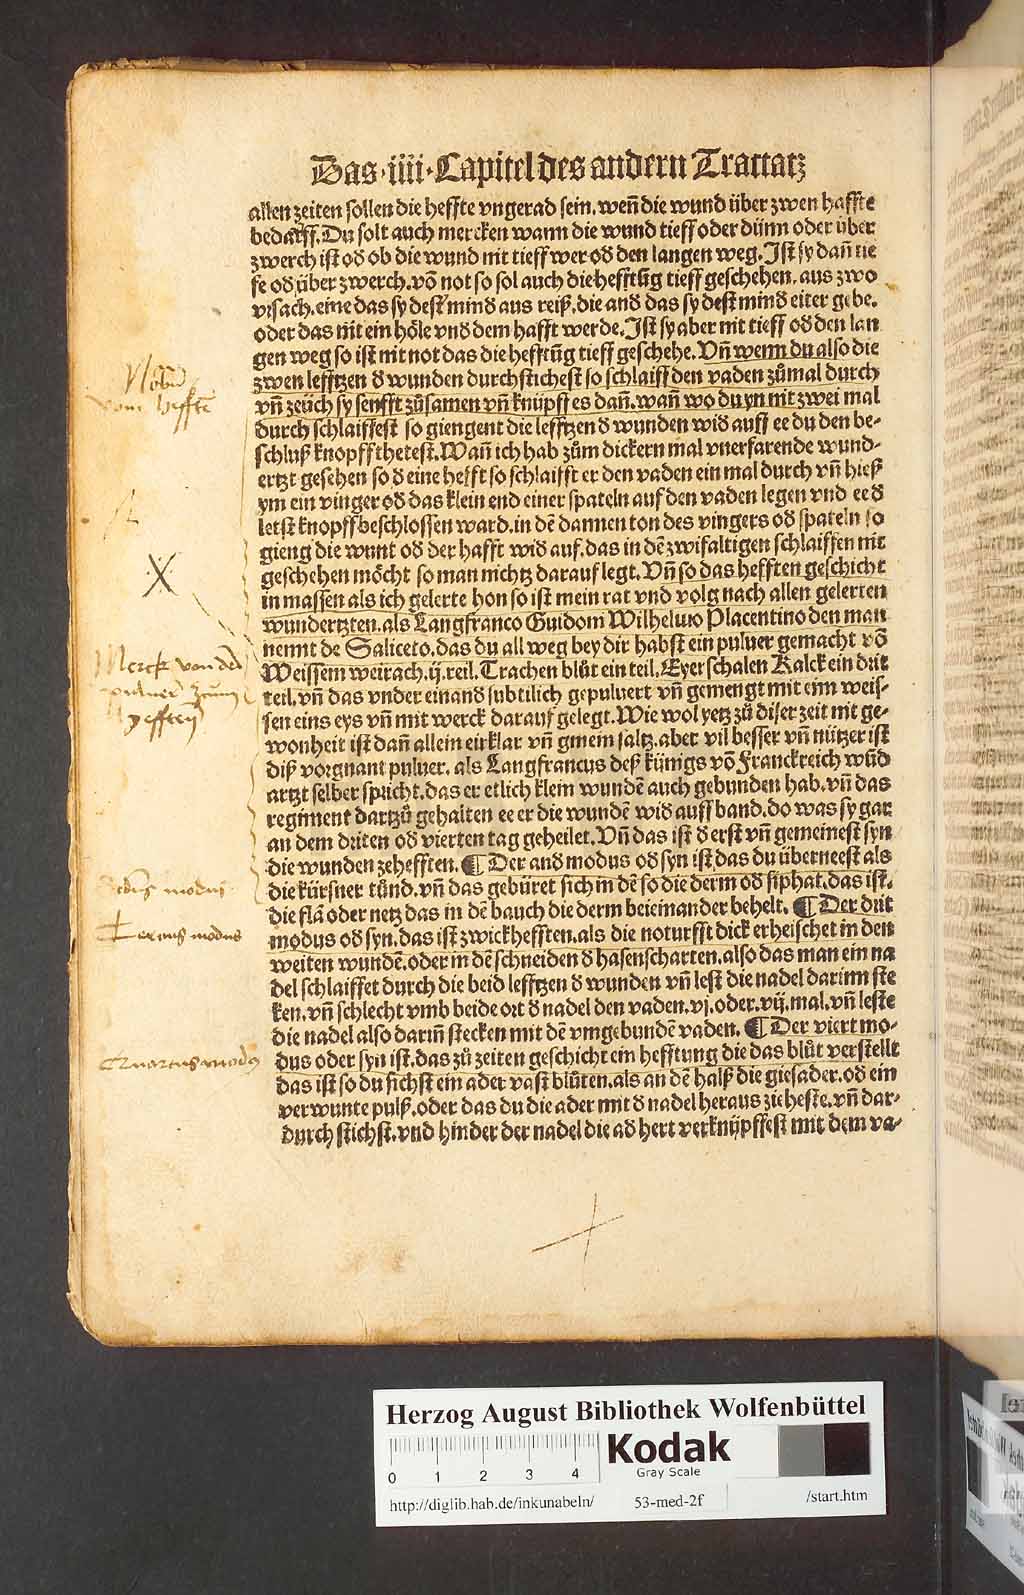 Das·iiii·Capitel des andern Tractatz
allen zeiten sollen die heffte vngerad sein. weñ die wund über zwen haffte
bedarff. Du solt auch mercken wann die wund tieff oder dünn oder über
zwerch ist oď ob die wund nit tieff wer oď den langen weg. Ist sy dañ tie
fe oď über zwerch. vō not so sol auch die hefftūg tieff geschehen. aus zwo
vrsach. eine das sy dest mind aus reiß. die and das sy dest mind eiter gebe.
oder das nit ein höle vnd dem hafft werde. Ist sy aber nit tieff oď den lan
gen weg so ist nit not das die hefftūg tieff geschehe. Vñ wenn du also die
zwen lefftzen ď wunden durchstichest so schlaiff den vaden zůmal durch
vñ zeüch sy senfft zůsamen vñ knüpff es dañ. wañ wo du yn nit zwei mal
durch schlaiffest so giengent die lefftzen ď wunden wiď auff ee du den be-
schluß knopff thetest. Wañ ich hab zům dickern mal vnerfarende wund-
ertzt gesehen so ď eine hefft so schlaifft er den vaden ein mal durch vñ hieß
ym ein vinger oď das klein end einer spateln auf den vaden legen vnd ee ď
letst knopff beschlossen ward. in dē dannen ton des vingers oď spateln so
gieng die wunt oď der hafft wiď auf. das in dē zwifaltigen schlaiffen nit
geschehen möcht so man nichtz darauf legt. Vñ so das hefften geschicht
in massen als ich gelerte hon so ist mein rat vnd volg nach allen gelerten
wundertzten. als Langfranco Guidom Wilhelmo Placentino den man
nennt de Saliceto. das du all weg bey dir habst ein puluer gemacht vō
Weissem weirach. ij. teil. Trachen blůt ein teil. Eyer schalen Kalck ein drit
teil. vñ das vnder einand subtilich gepuluert vñ gemengt mit eim weis-
sen eins eys vñ mit werck darauf gelegt. Wie wol yetz zů diser zeit nit ge-
wonheit ist dañ allein eirklar vñ gmein saltz. aber vil besser vñ nützer ist
diß vorgnant puluer. als Langfrancus deß künigs vō Franckreich wūd
artzt selber spricht. das er etlich klein wundē auch gebunden hab. vñ das
regiment dartzů gehalten ee er die wundē wiď auff band. do was sy gar
an dem driten oď vierten tag geheilet. Vñ das ist ď erst vñ gemeinest syn
die wunden zehefften. ¶ Der and modus oď syn ist das du überneest als
die kürsner tůnd. vñ das gebüret sich in dē so die derm oď siphat. das ist.
die flā oder netz das in dē bauch die derm beieinander behelt. ¶ Der drit
modus oď syn. das ist zwickhefften. als die noturfft dick erheischet in den
weiten wundē. oder in dē schneiden ď hasenscharten. also das man ein na
del schlaiffet durch die beid lefftzen ď wunden vñ lest die nadel darinn ste
ken. vñ schlecht vmb beide ort ď nadel den vaden. vj. oder. vij. mal. vñ leste
die nadel also dariñ stecken mit dē vmgebundē vaden. ¶ Der viert mo-
dus oder syn ist. das zů zeiten geschicht ein hefftung die das blůt verstellt
das ist so du sichst ein ader vast blůten. als an dē halß die giesader. oď ein
verwunte pulß. oder das du die ader mit ď nadel heraus zieheste. vñ dar-
durch stichst. vnd hinder der nadel die aď hert verknüpffest mit dem va-
vom hefftē
X
Merck von dem
puluer zum
hefften
modus
Tercius modus
Quartus modus
Herzog August Bibliothek Wolfenbüttel
0 1 2 3 4
Kodak
Gray Scale
http://diglib.hab.de/inkunabeln/ 53-med-2f /start.htm